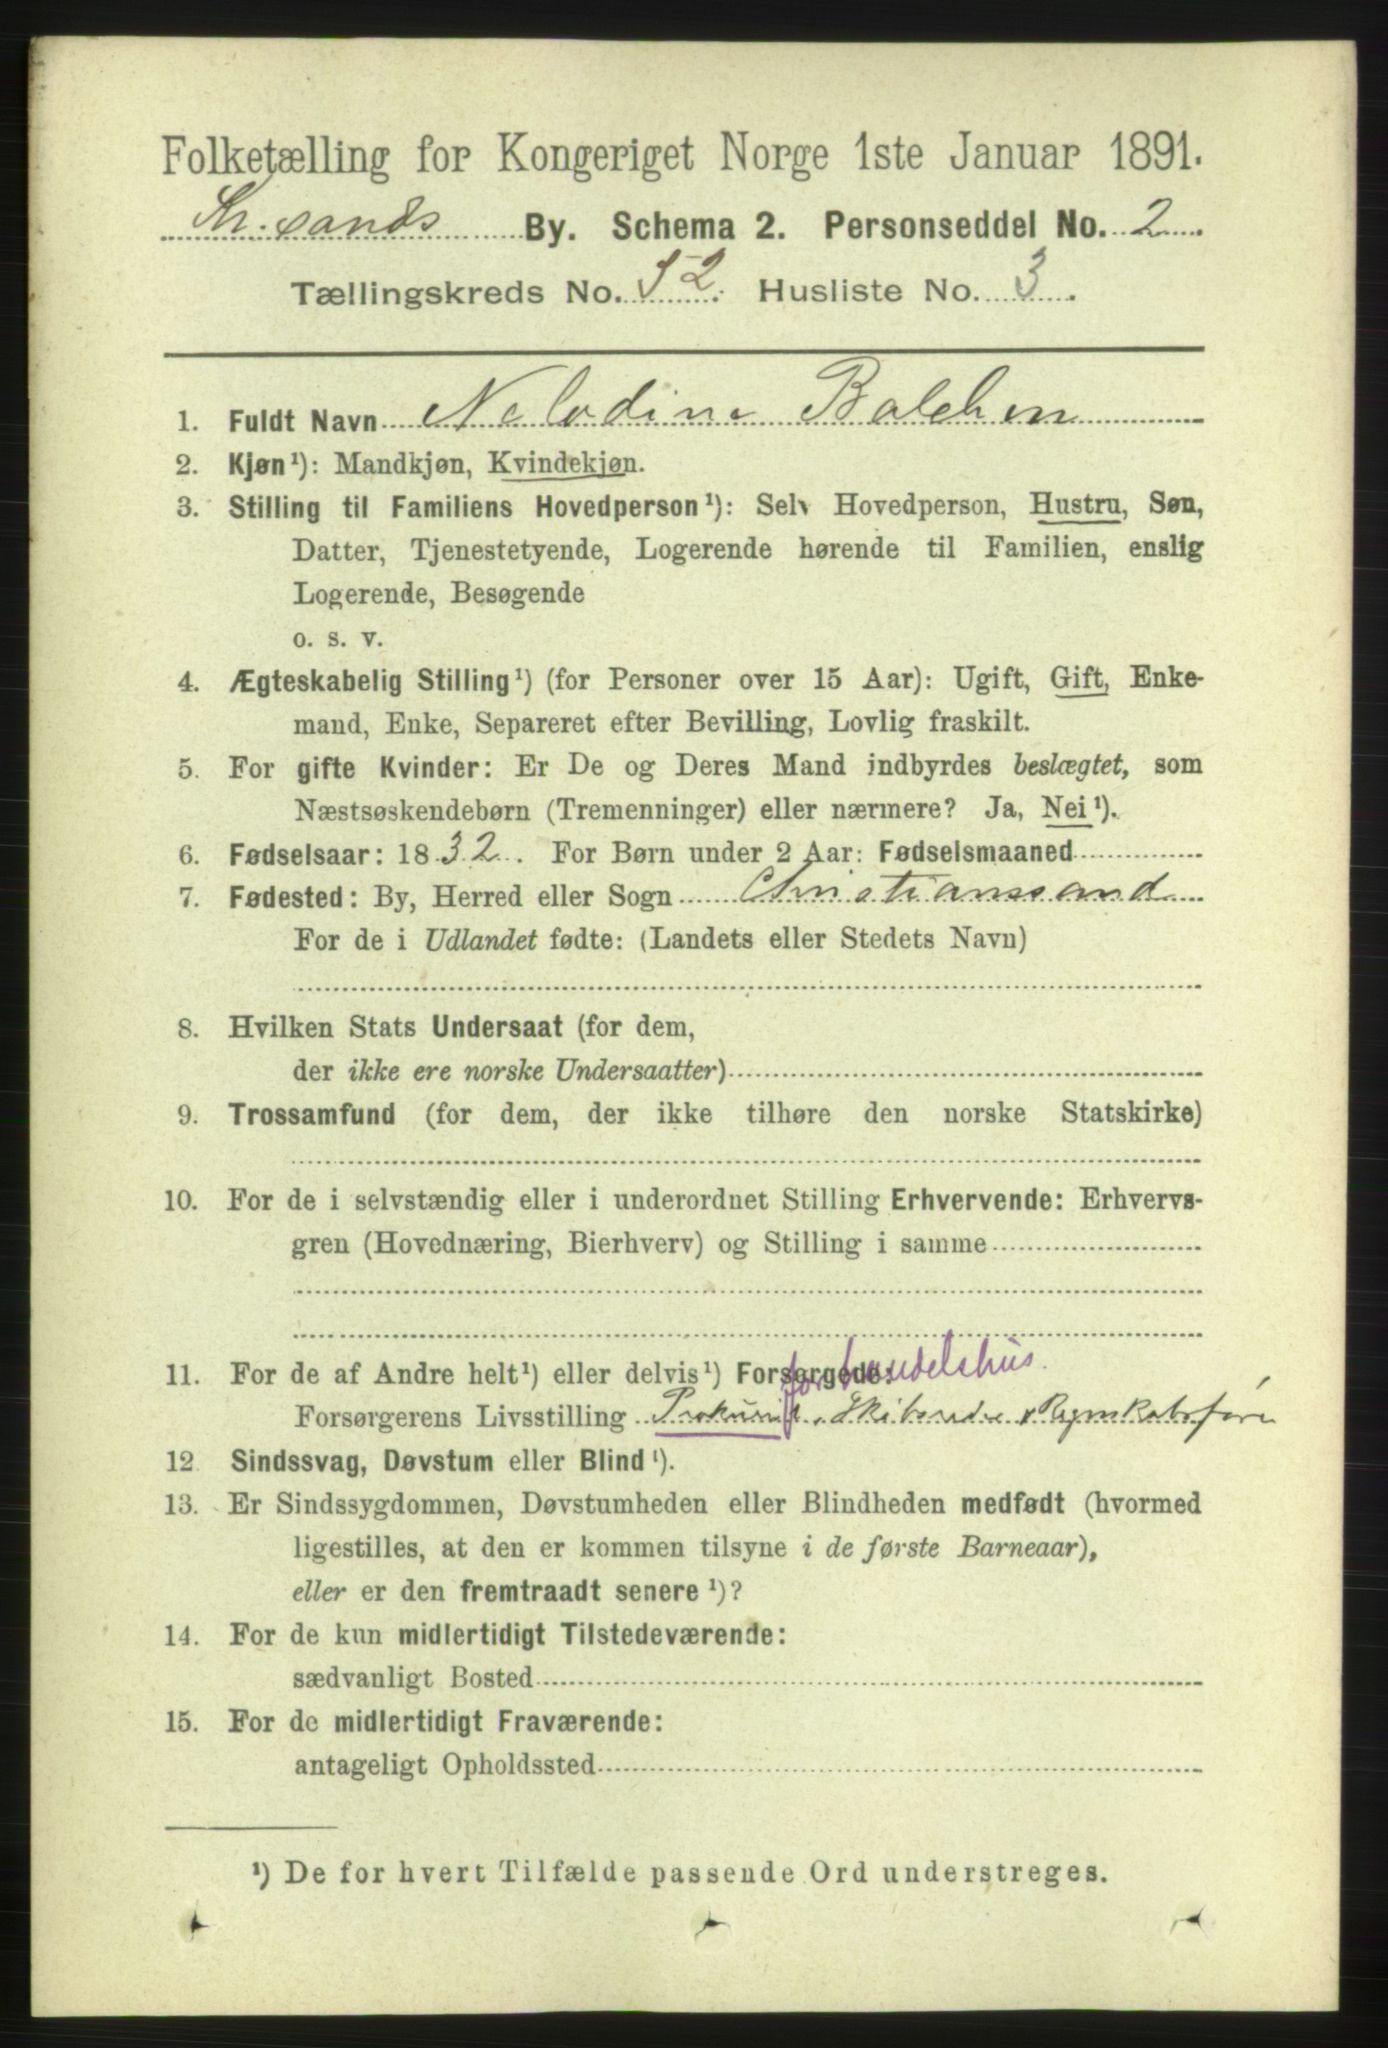 Folketælling for Kongeriget Norge 1ste Januar 1891.
Kr.sands By. Schema 2. Personseddel No. 2
Tællingskreds No. 52. Husliste No. 3.
1. Fuldt Navn Nelodine Balchen
2. Kjøn¹): Mandkjøn, Kvindekjøn.
3. Stilling til Familiens Hovedperson¹): Selv Hovedperson, Hustru, Søn,
Datter, Tjenestetyende, Logerende hørende til Familien, enslig
Logerende, Besøgende
o. s. v.
4. Ægteskabelig Stilling¹) (for Personer over 15 Aar): Ugift, Gift, Enke-
mand, Enke, Separeret efter Bevilling, Lovlig fraskilt.
5. For gifte Kvinder: Er De og Deres Mand indbyrdes beslægtet, som
Næstsøskendebørn (Tremenninger) eller nærmere? Ja, Nei¹).
6. Fødselsaar: 1832. For Børn under 2 Aar: Fødselsmaaned
7. Fødested: By, Herred eller Sogn Christianssand
For de i Udlandet fødte: (Landets eller Stedets Navn)
8. Hvilken Stats Undersaat (for dem,
der ikke ere norske Undersaatter)
9. Trossamfund (for dem, der ikke tilhøre den norske Statskirke)
10. For de i selvstændig eller i underordnet Stilling Erhvervende: Erhvervs-
gren (Hovednæring, Bierhverv) og Stilling i samme
for handelshus.
11. For de af Andre helt¹) eller delvis¹) Forsørgede:
Forsørgerens Livsstilling Prokurist, Skibsreder, Regnskabsfører
12 Sindssvag, Døvstum eller Blind¹).
13. Er Sindssygdommen, Døvstumheden eller Blindheden medfødt (hvormed
ligestilles, at den er kommen tilsyne i de første Barneaar),
eller er den fremtraadt senere¹)?
14. For de kun midlertidigt Tilstedeværende:
sædvanligt Bosted
15. For de midlertidigt Fraværende:
antageligt Opholdssted
¹) De for hvert Tilfælde passende Ord understreges.